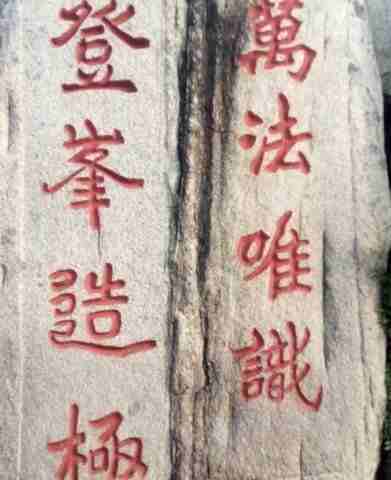 萬法唯識
登峯造極